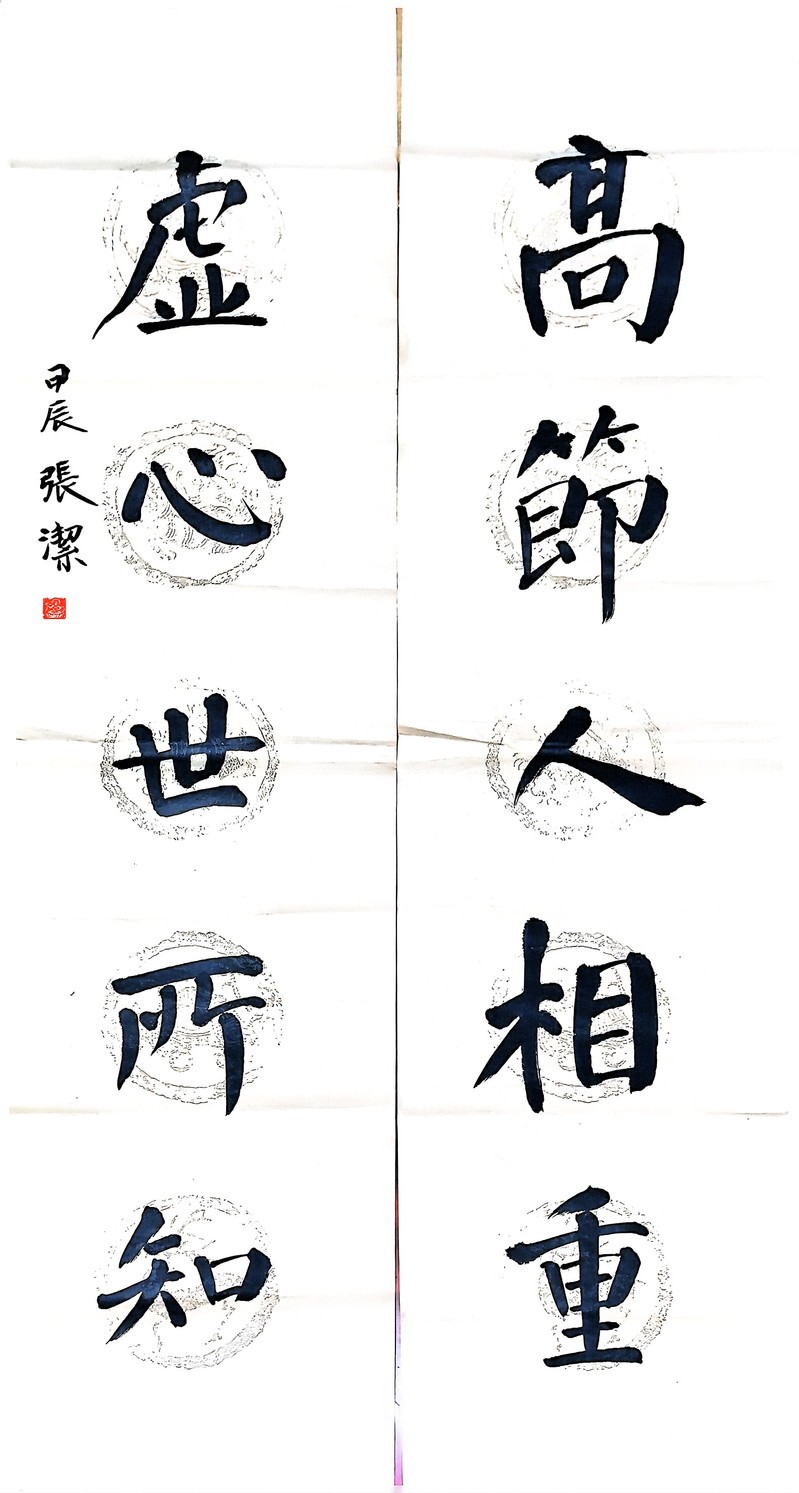 高節人相重
虚心世所知
甲辰 張潔